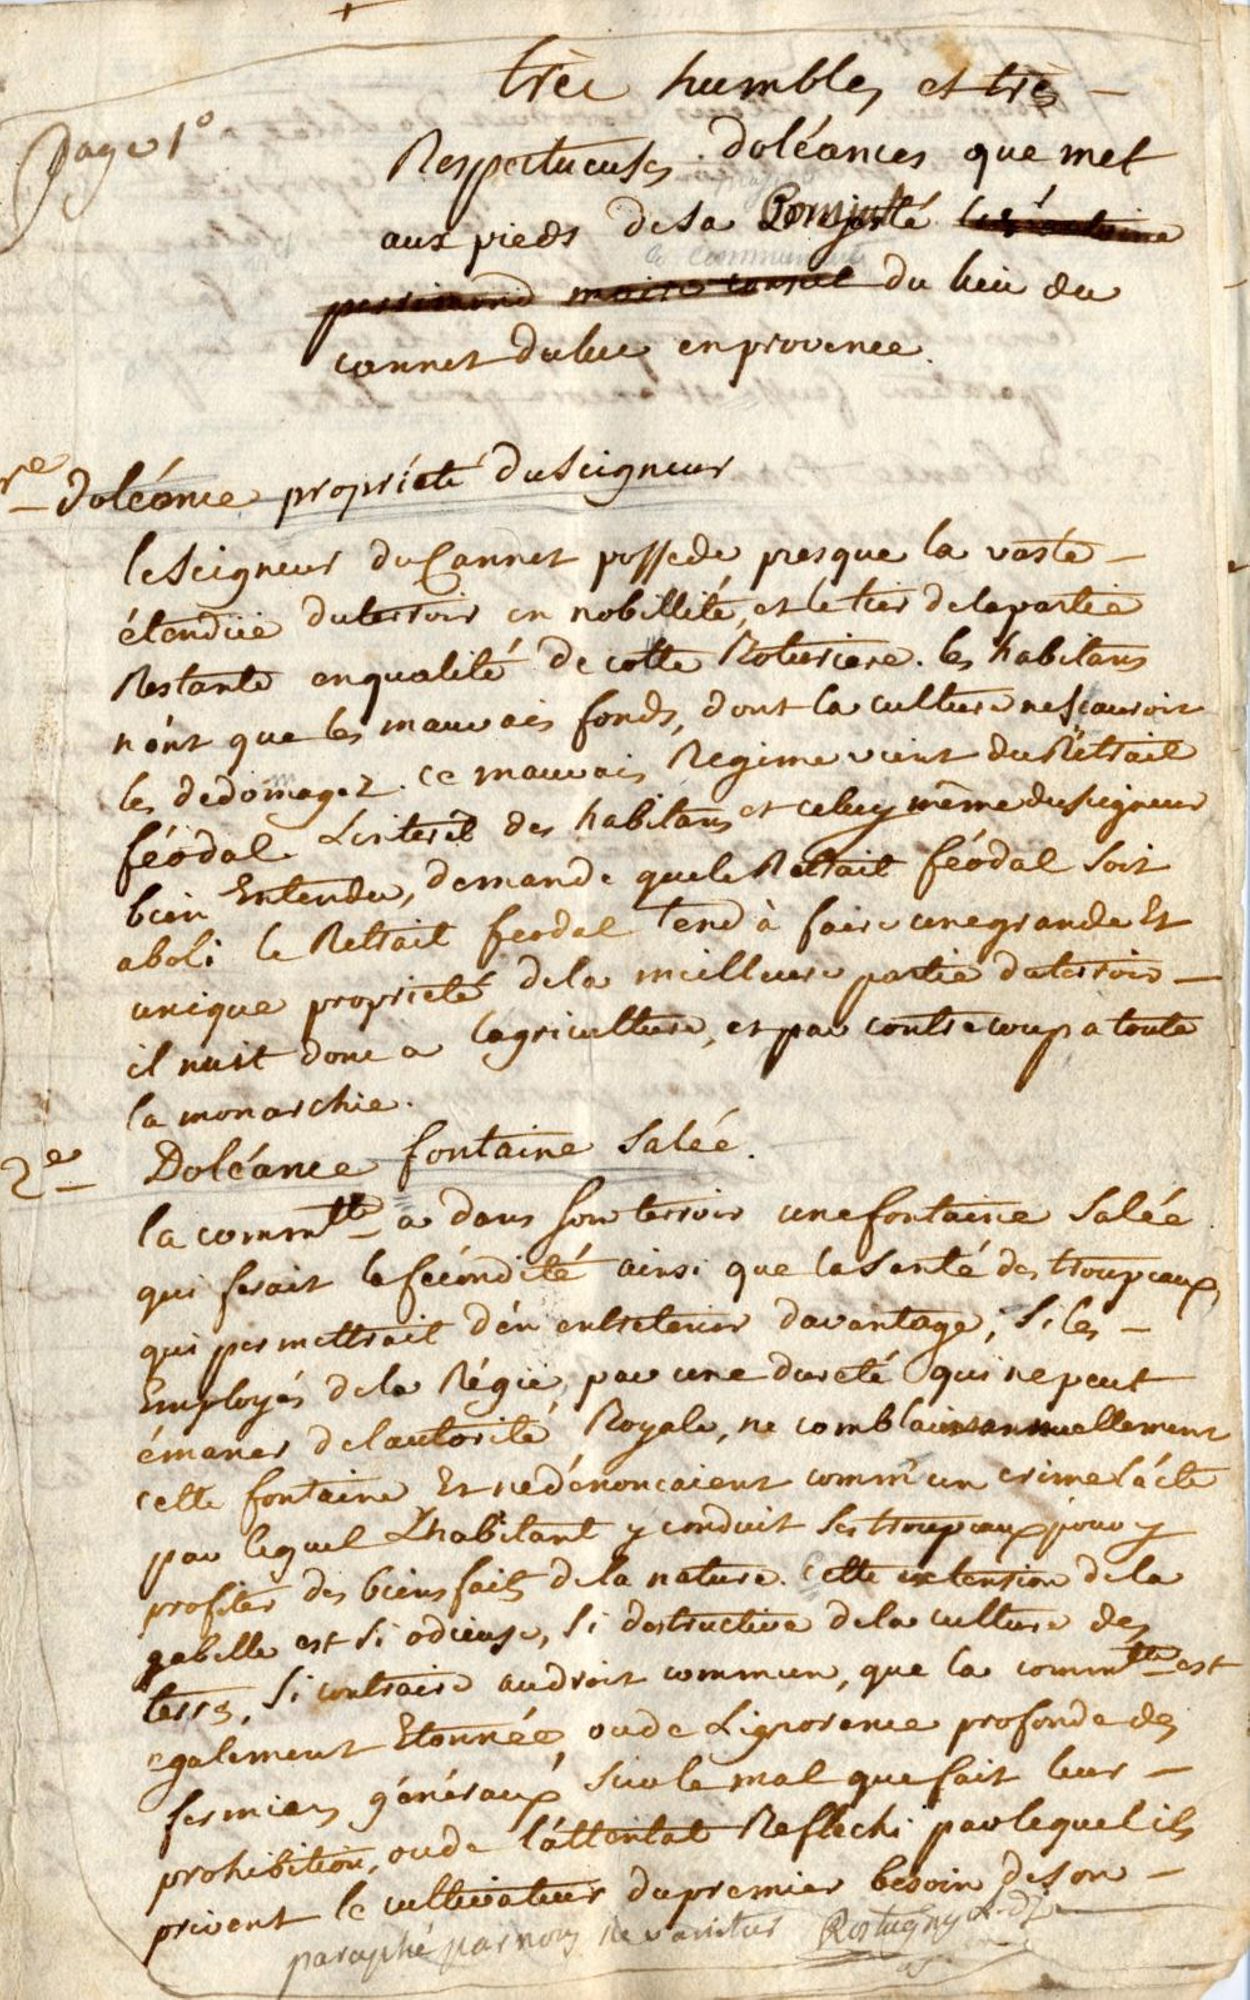 Page 1º
très humbles et très
Respectueuses doléances que met
aux pieds de sa
la communauté
du lieu du
cannet du luc en provence.
1re doléance propriété du Seigneur
le Seigneur du Cannet possede presque la vaste
étendüe du terroir en nobillité, et le tier de la partie
Restante en qualité de cotte Roturiere. les habitans
n'ont que les mauvais fonds, dont la culture ne sçauroit
les dedomager. ce mauvais Regime vient du Retrait
féodal. L'interet des habitans et celuy même du seigneur
bien Entendu, demande que le Retrait féodal soit
aboli le Retrait feodal tend à faire une grande Et
unique proprieté de la meilleure partie du terroir
il nuit donc a lagriculture, et par contre coup a toute
la monarchie.
2e Doléance fontaine Salée.
la commté a dans son terroir une fontaine Salée
qui ferait la fécondité ainsi que la santé des troupeaux,
qui permettrait d'en entretenir davantage, si les
Employés de la Régie, par une dureté qui ne peut
émaner de l'autorité Royale, ne comblaient annuellement
cette fontaine Et ne dénonçaient comm'un crime l'acte
par lequel L'habitant y conduit ses troupeaux pour y
profiter des biensfaits de la nature. cette extension de la
gabelle est si odieuse, si destructive de la culture des
terres, si contraire au droit commun, que la commté est
egalement Etonnée, ou de L'ignorence profonde des
fermiers généraux sur le mal que fait leur
prohibition, ou de l'attentat Reflechi par lequel ils
privent le cultivateur du premier besoin de son
paraphé par nous ne varietur